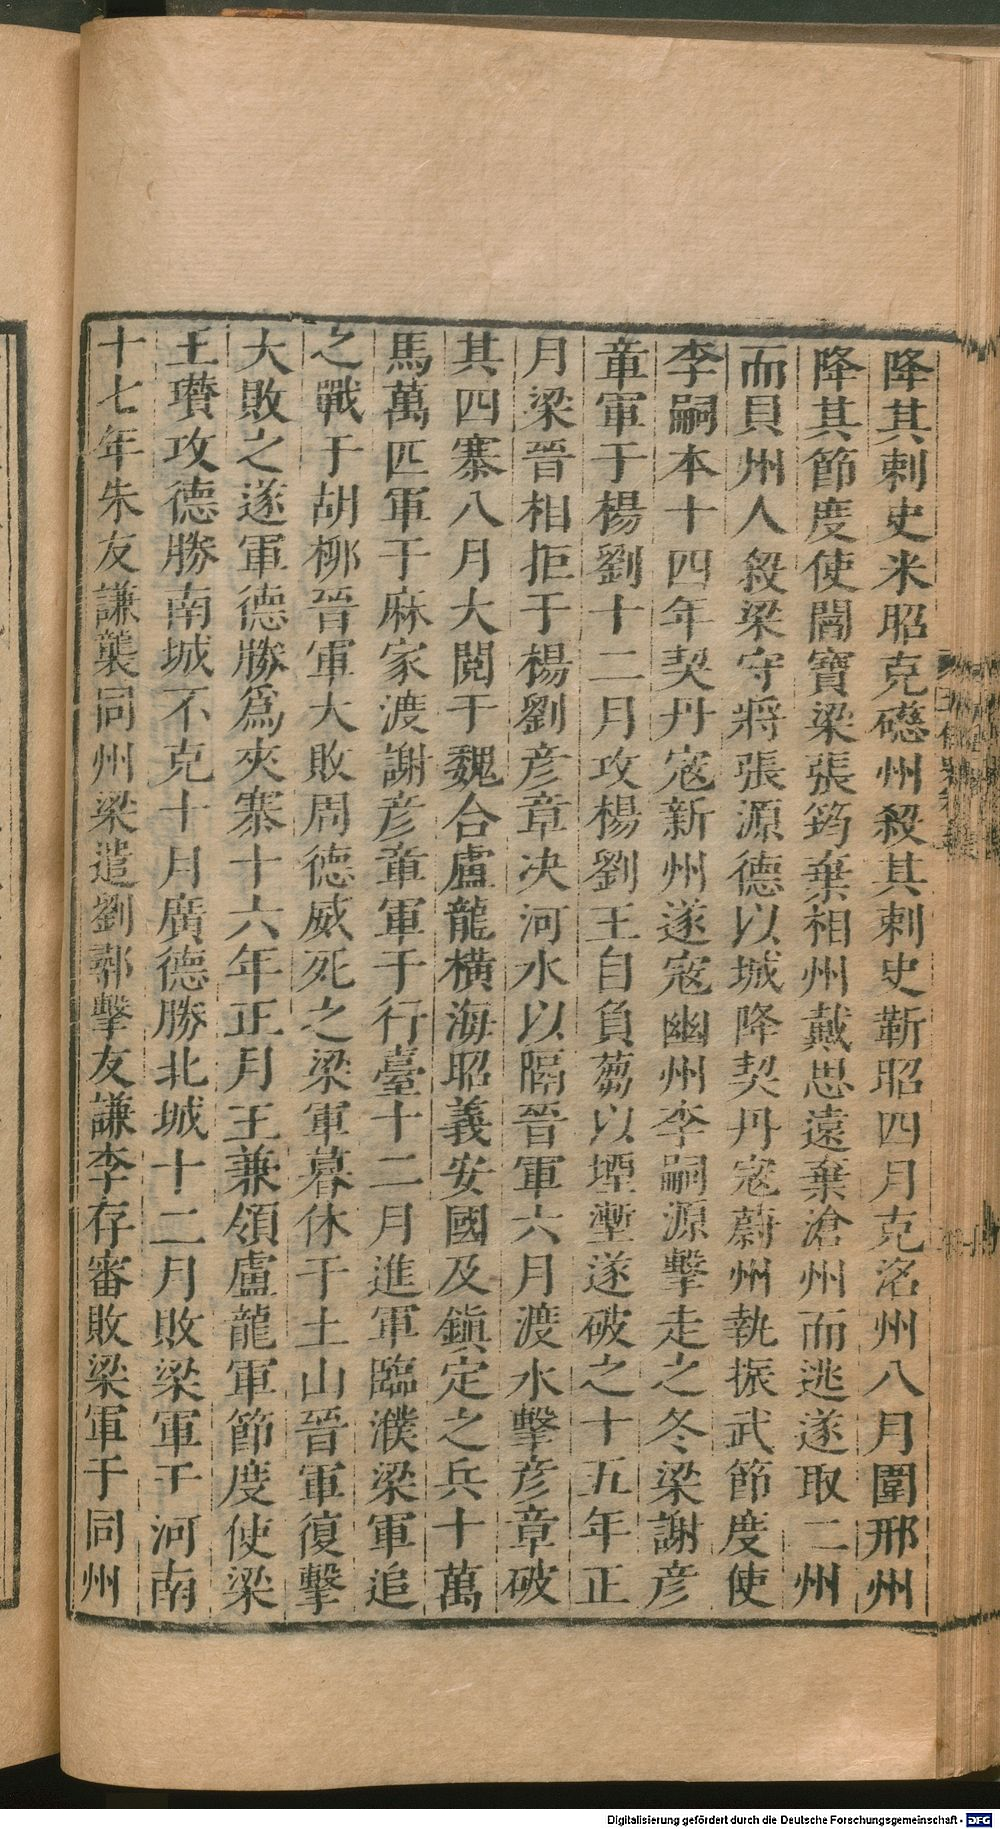 降其刺史米昭克礠州殺其刺史靳昭四月克洺州八月圍邢州
降其節度使閻寶梁張筠棄相州戴思遠棄滄州而逃遂取二州
而貝州人殺梁守將張源德以城降契丹寇蔚州執振武節度使
李嗣本十四年契丹寇新州遂寇幽州李嗣源擊走之冬梁謝彦
章軍于楊劉十二月攻楊劉王自負蒭以堙塹遂破之十五年正
月梁晉相拒于楊劉彦章决河水以隔晉軍六月渡水擊彦章破
其四寨八月大閱于魏合盧龍橫海昭義安國及鎭定之兵十萬
馬萬匹軍于麻家渡謝彦章軍于行臺十二月進軍臨濮梁軍追
之戰于胡栁晉軍大敗周德威死之梁軍暮休于土山晉軍復擊
大敗之遂軍德勝爲夾寨十六年正月王兼領盧龍軍節度使梁
王瓚攻德勝南城不克十月廣德勝北城十二月敗梁軍于河南
十七年朱友謙襲同州梁遣劉鄩擊友謙李存審敗梁軍于同州
Digitalisierung gefördert durch die Deutsche Forschungsgemeinschaft - DFG